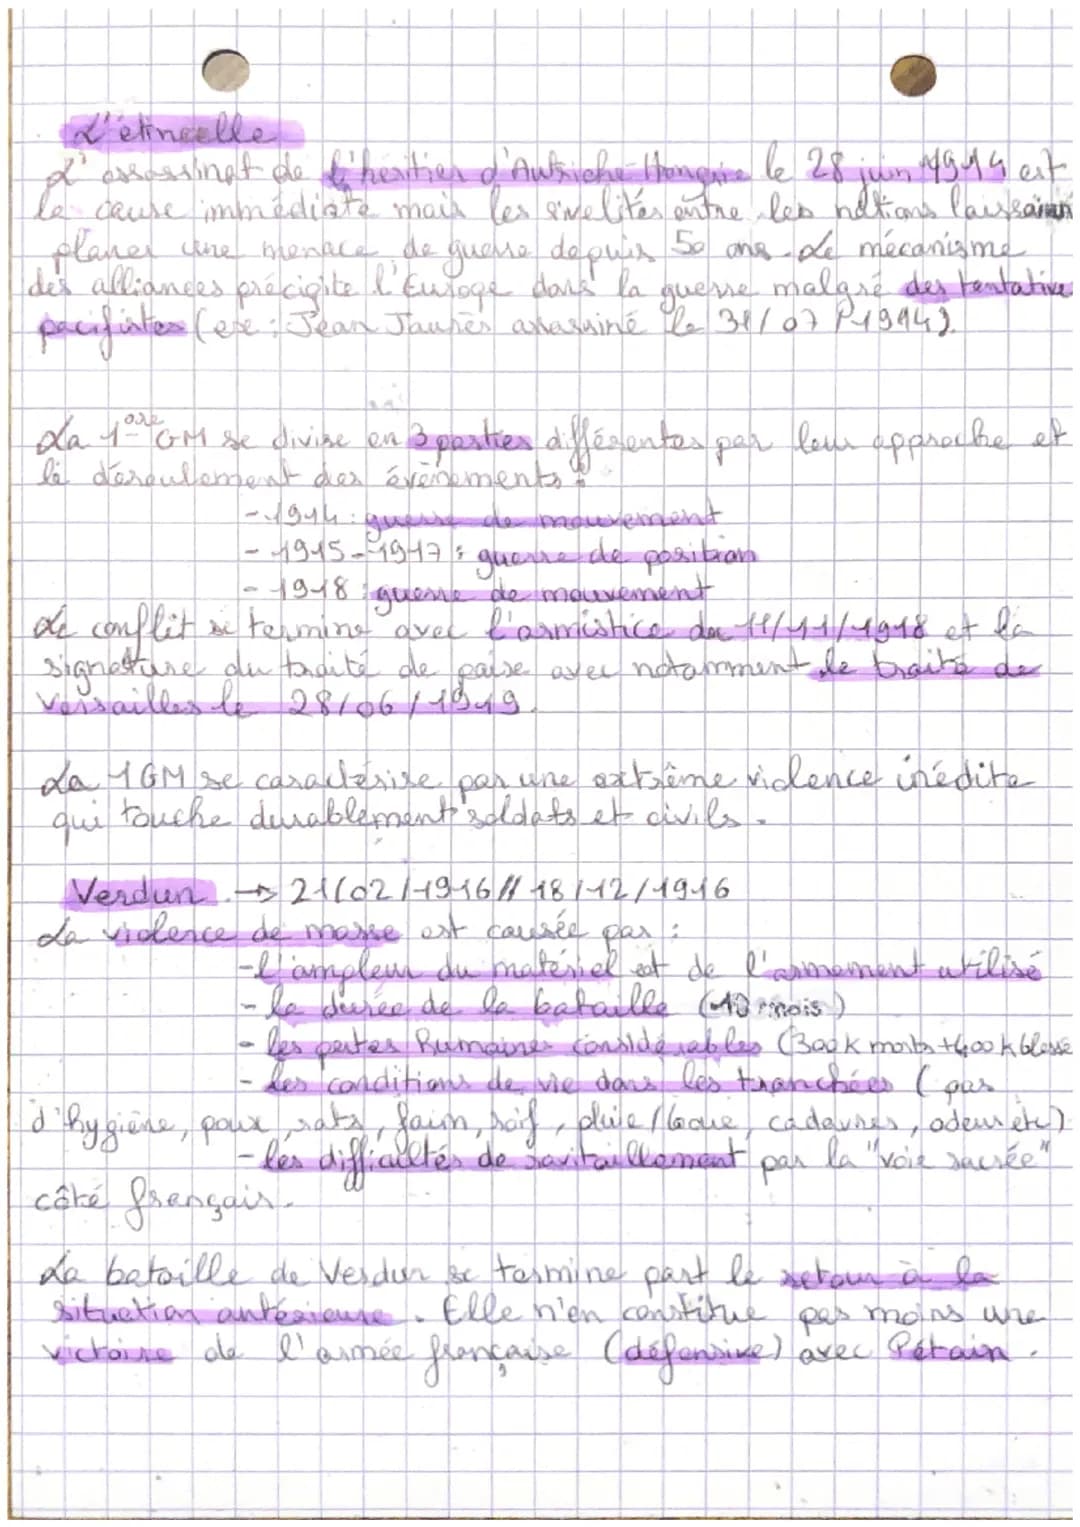 L'étincelle
L'assassinat de l'héritier d'Autriche-Hongrie le 28 juin 1914 est
la cause immédiate mais les rivelités entre les nations laissaient
planer une menace de guerre depuis 50 ans. Le mécanisme
des alliances précipite l'Europe dans la guerre malgré des tentative
pacifistes (exe : Jean Jaurès assassiné le 31/07/1914).
La 1ère GM se divise en 3 parties différentes par leur approche et
le déroulement des évènements :
- 1914 : guerre de mouvement
- 1915-1917 : guerre de position
- 1918 : guerre de mouvement
Le conflit se termine avec l'armistice du 11/11/1918 et la
signature du traité de paixe avec notamment le traité de
Versailles le 28/06/1919.
La 1GM se caractérise par une extrême violence inédite
qui touche durablement soldats et civils.
Verdun → 21/02/1916 // 18/12/1916
La violence de masse est causée par :
- l'ampleur du matériel et de l'armement utilisé
- la durée de la bataille (10 mois)
- les pertes humaines considérables (300k morts + 400k blessé
- les conditions de vie dans les tranchées (pas
d'hygiène, poux, rats, faim, soif, pluie/boue, cadavres, odeur etc)
- les difficultés de ravitaillement par la "voie sacrée"
côté français.
La bataille de Verdun se termine part le retour à la
situation antérieure. Elle n'en constitue pas moins une
victoire de l'armée française (défensive) avec Pétain.